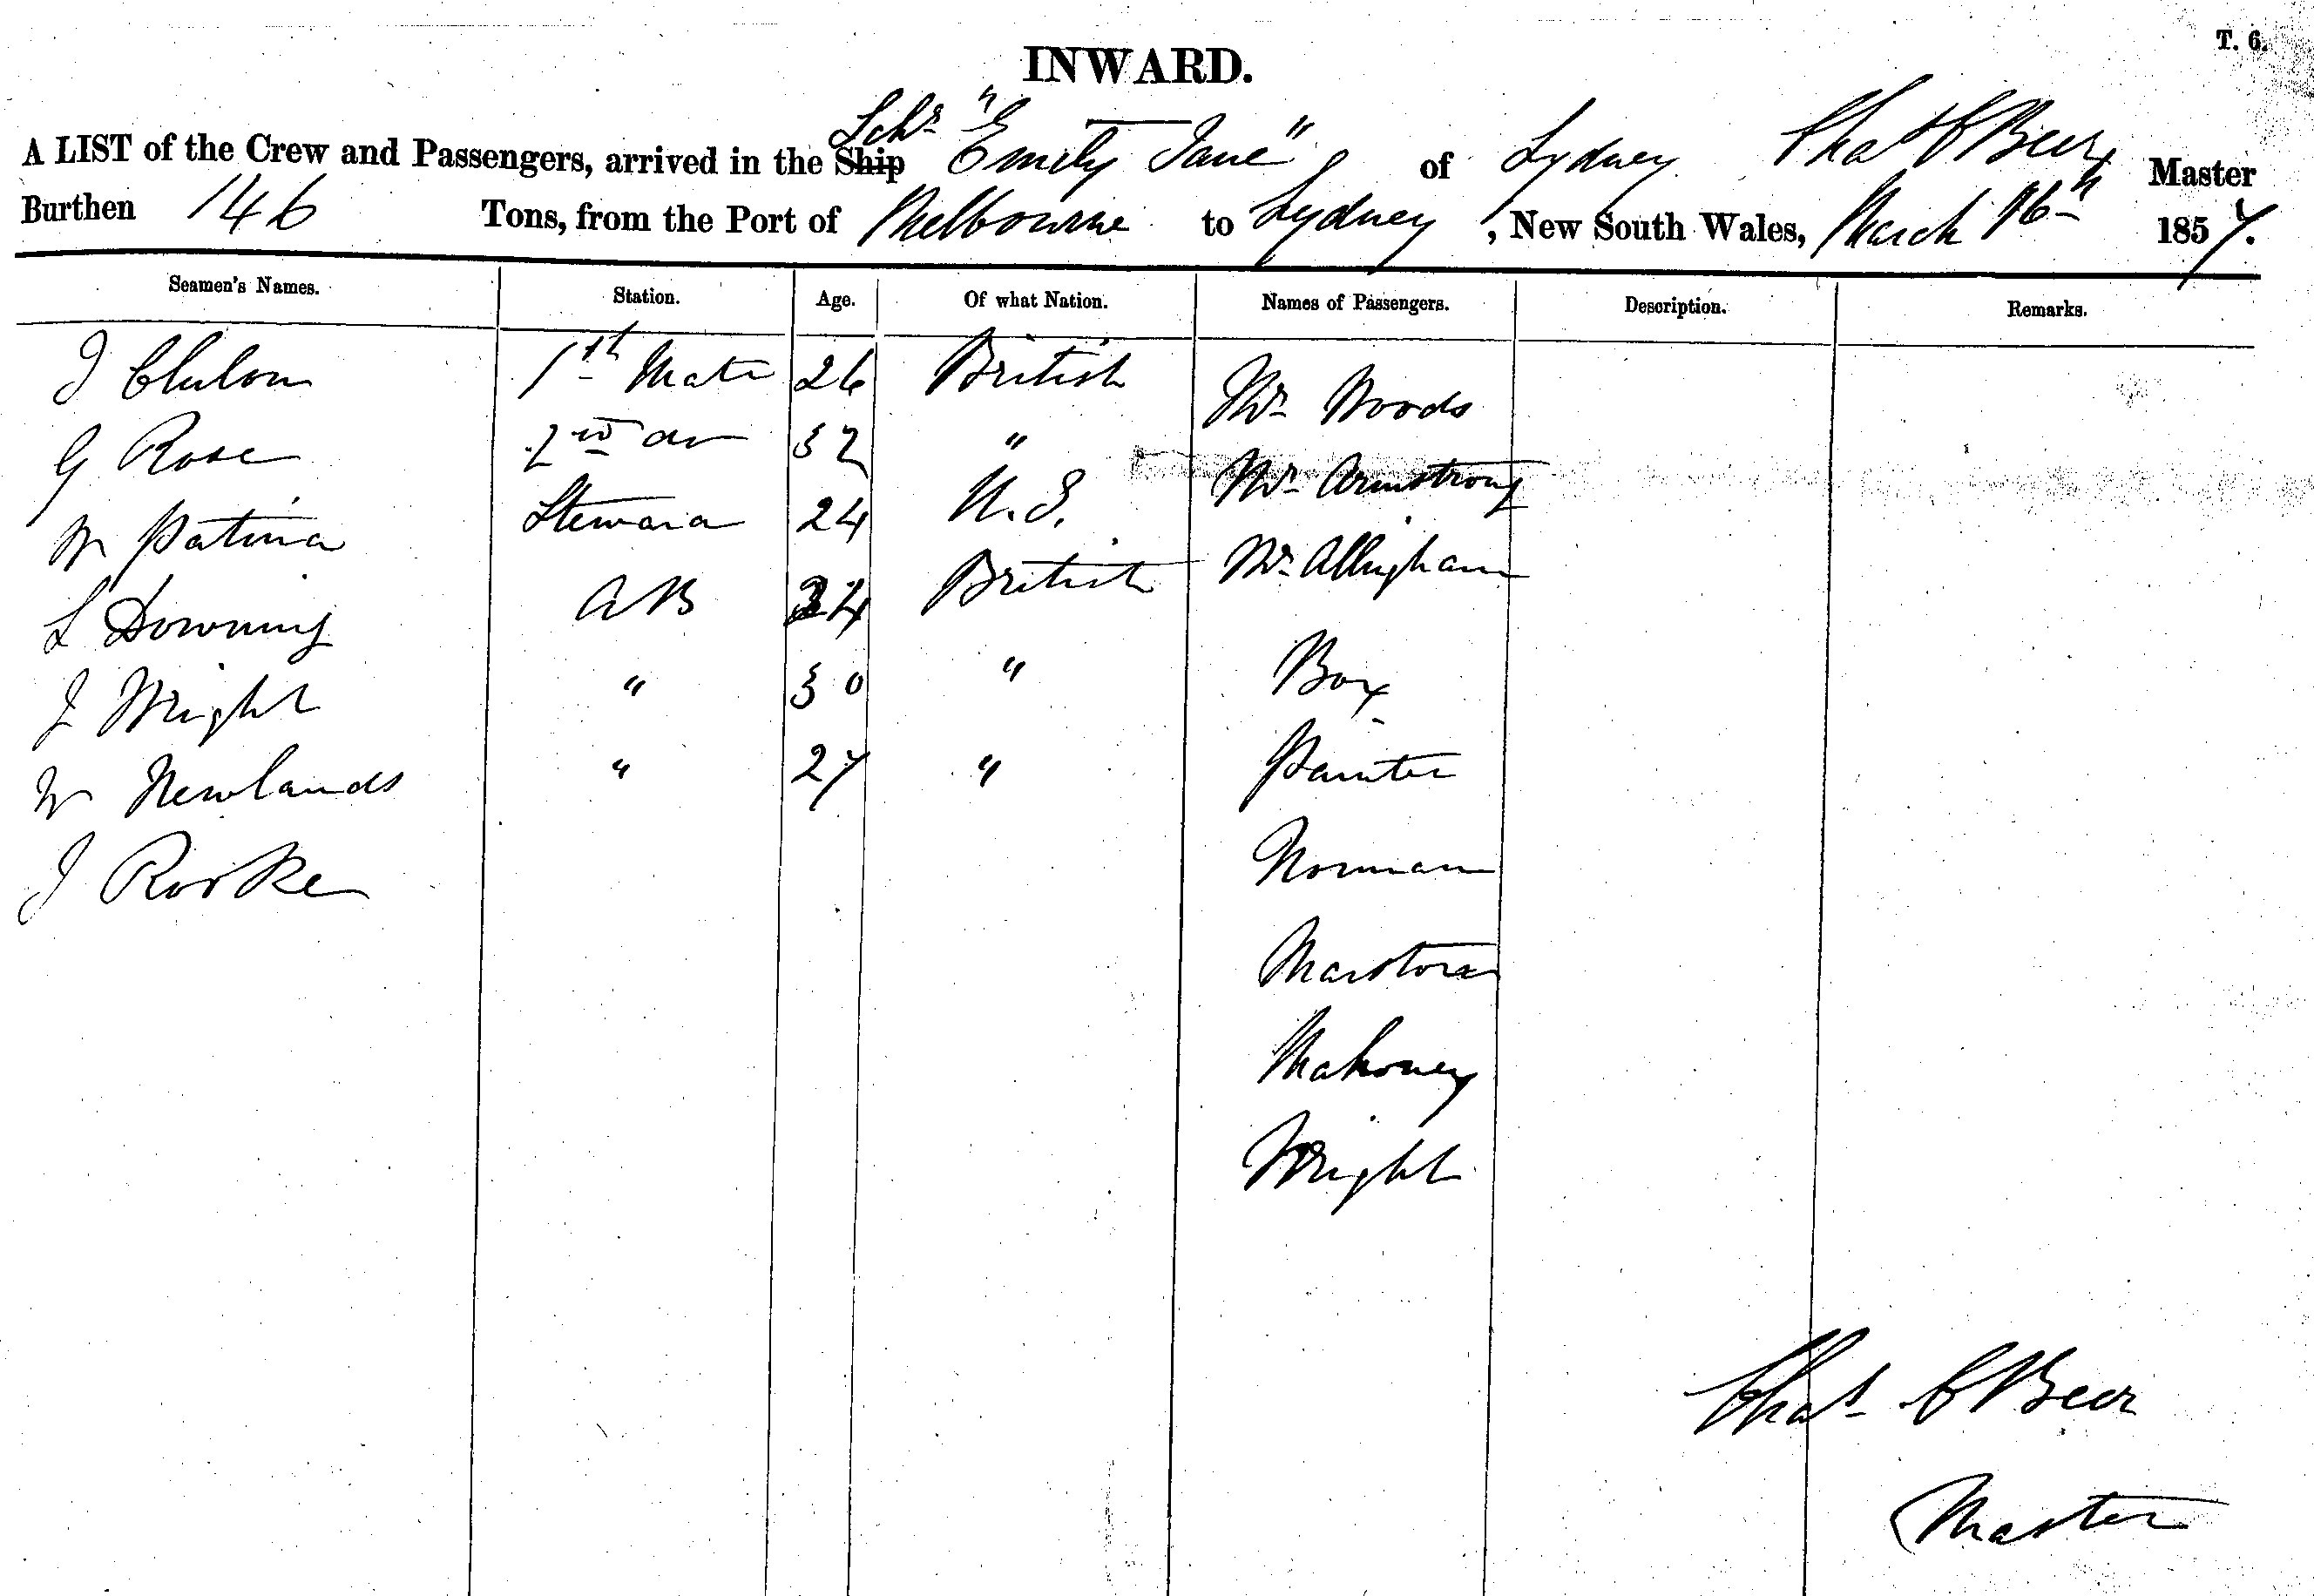 T. 6.
INWARD.
A LIST of the Crew and Passengers, arrived in the Ship Schr "Emily Jane" of Sydney Chas C Beer Master
Burthen 146 Tons, from the Port of Melbourne to Sydney, New South Wales, March 16th 1857.
Seamen's Names. Station. Age. Of what Nation. Names of Passengers. Description. Remarks.
J 1st Mate 26 British Mr Woods
G Rose 2nd do 32 " Mr Armstrong
W Steward 24 U.S. Mr Allingham
L Downing AB 24 British
J Wright " 30 " Box
W Newlands " 27 " Painter
J Rooke Norman
Marstors
Mahoney
Wright
Chas C Beer
Master